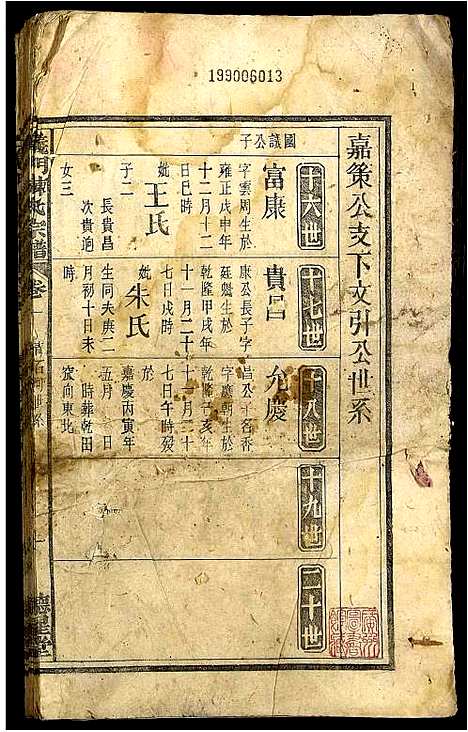 199006013
嘉策公支下文引公世系
十六世
國議公子
富康
字雲周生於
雍正戊申年
十二月十二
日巳時
妣王氏
子二
長貴昌
次貴迫
女三
十七世
貴昌
康公長子字
廷魁生於
乾隆甲戌年
十一月二十
七日戌時
妣朱氏
生同夫庚二
月初十日未
時
十八世
允慶
昌公子名香
字慶朝生於
乾隆己亥年
十二月二十
七日午時歿
於
嘉慶丙寅年
五月 日
時葬乾田
窝向東北
十九世
二十世
義門陳氏宗譜
卷一
世系
聽星堂